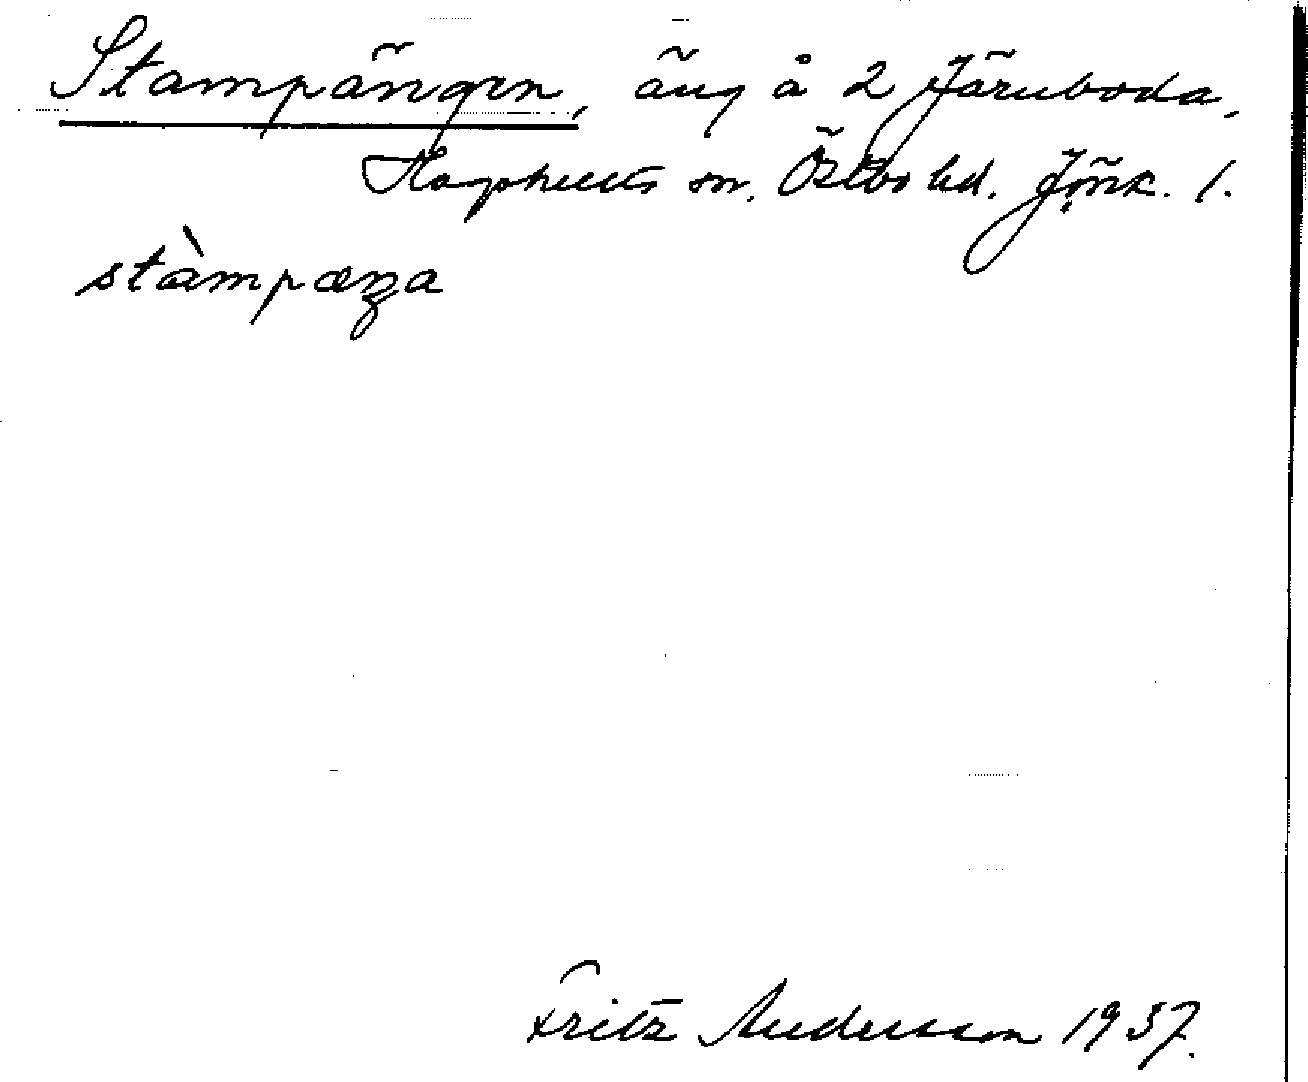 Stampängen, äng å 2 Järnboda,
Hagshults sn. Östbo hd. Jönk. l.
stàmpæŋa
Fritz Andersson 1937.